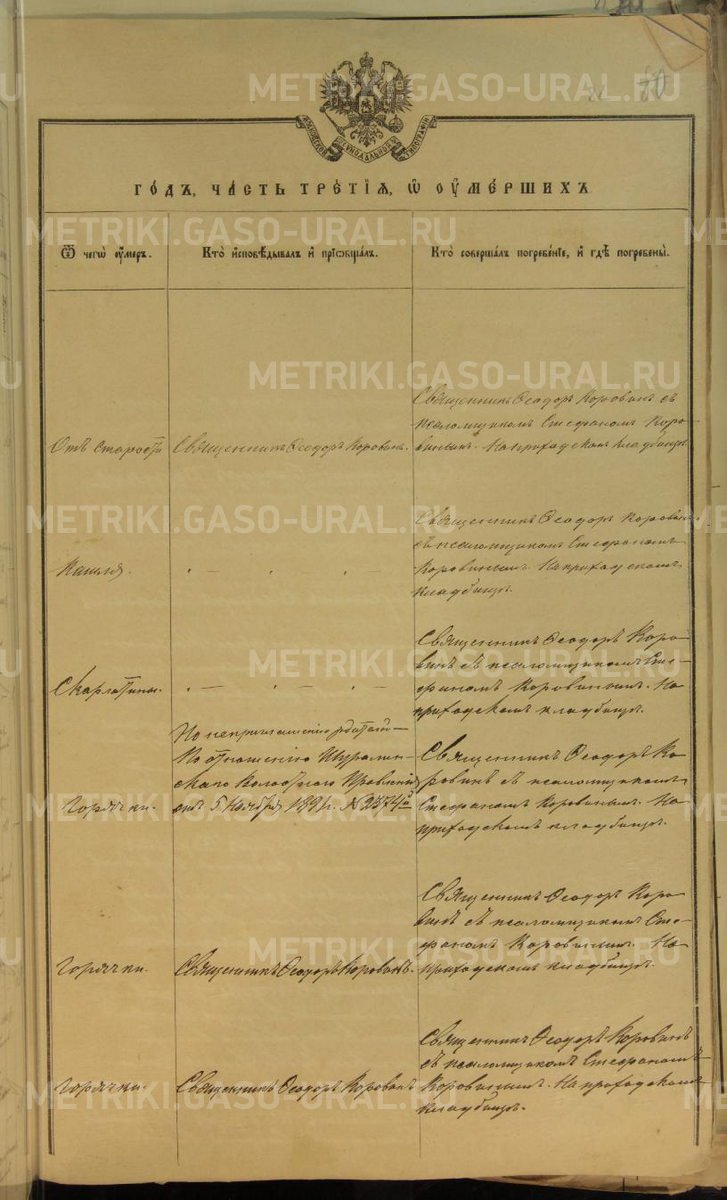 80
МОСКОВСКОЙ СѴНОДАЛЬНОЙ ТИПОГРАФІИ
ГОДЪ, ЧАСТЬ ТРЕТІЯ, Ѡ ОУМЕРШИХЪ
Ѿ чегѡ оумеръ.
Кто исповѣдывалъ и пріѡбщалъ.
Кто совершалъ погребеніе, и гдѣ погребены.
Отъ старости
Священникъ Ѳеодоръ Коровинъ.
Священникъ Ѳеодоръ Коровинъ съ
псаломщикомъ Стефаномъ Коро-
винымъ. На приходскомъ кладбищѣ.
Кашля.
Священникъ Ѳеодоръ Коровинъ
съ псаломщикомъ Стефаномъ
Коровинымъ. На приходскомъ
кладбищѣ.
Скарлатины.
Священникъ Ѳеодоръ Коро-
винъ съ псаломщикомъ Сте-
фаномъ Коровинымъ. На
приходскомъ кладбищѣ.
Горячки.
По отношенію
скаго Волостного Правленія
отъ 5 Ноября 1891 г. № 2874
Священникъ Ѳеодоръ Ко-
ровинъ съ псаломщикомъ
Стефаномъ Коровинымъ. На
приходскомъ кладбищѣ.
Горячки.
Священникъ Ѳеодоръ Коровинъ.
Священникъ Ѳеодоръ Коро-
винъ съ псаломщикомъ Сте-
фаномъ Коровинымъ. На
приходскомъ кладбищѣ.
Горячки.
Священникъ Ѳеодоръ Коровинъ
Священникъ Ѳеодоръ Коровинъ
съ псаломщикомъ Стефаномъ
Коровинымъ. На приходскомъ
кладбищѣ.
METRIKI.GASO-URAL.RU